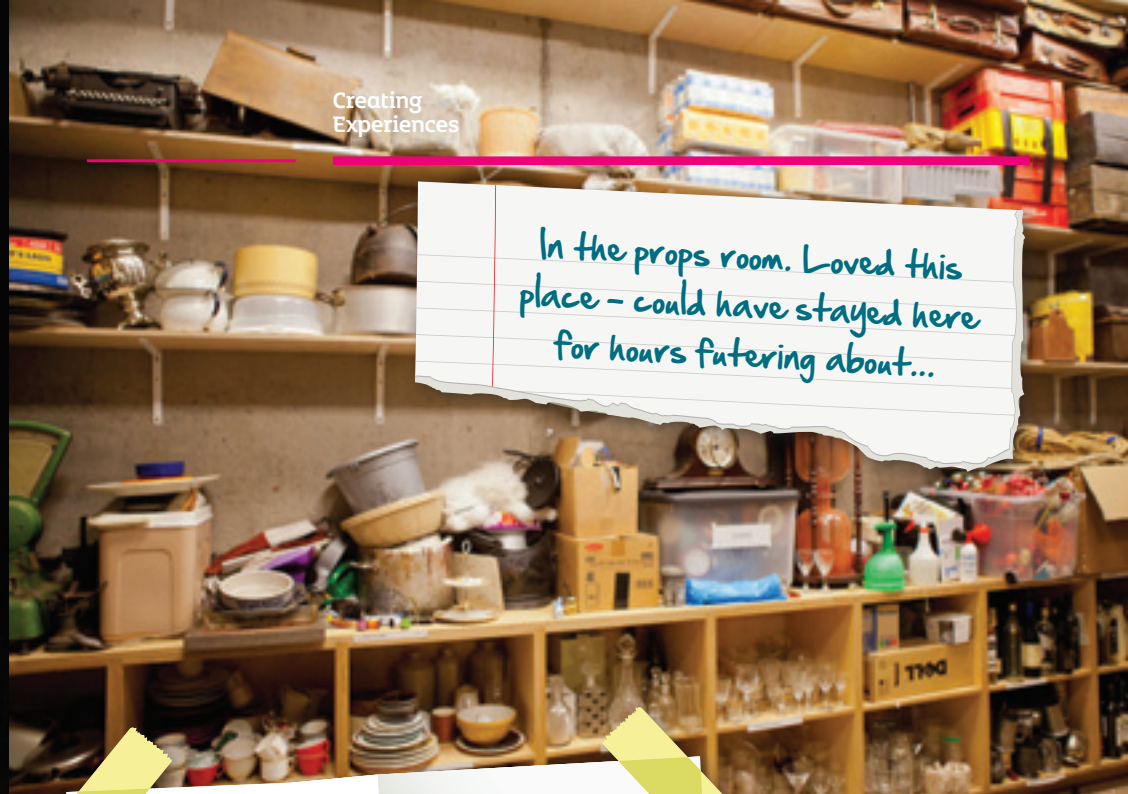 Creating
Experiences
In the props room. Loved this
place – could have stayed here
for hours futering about...
DELL